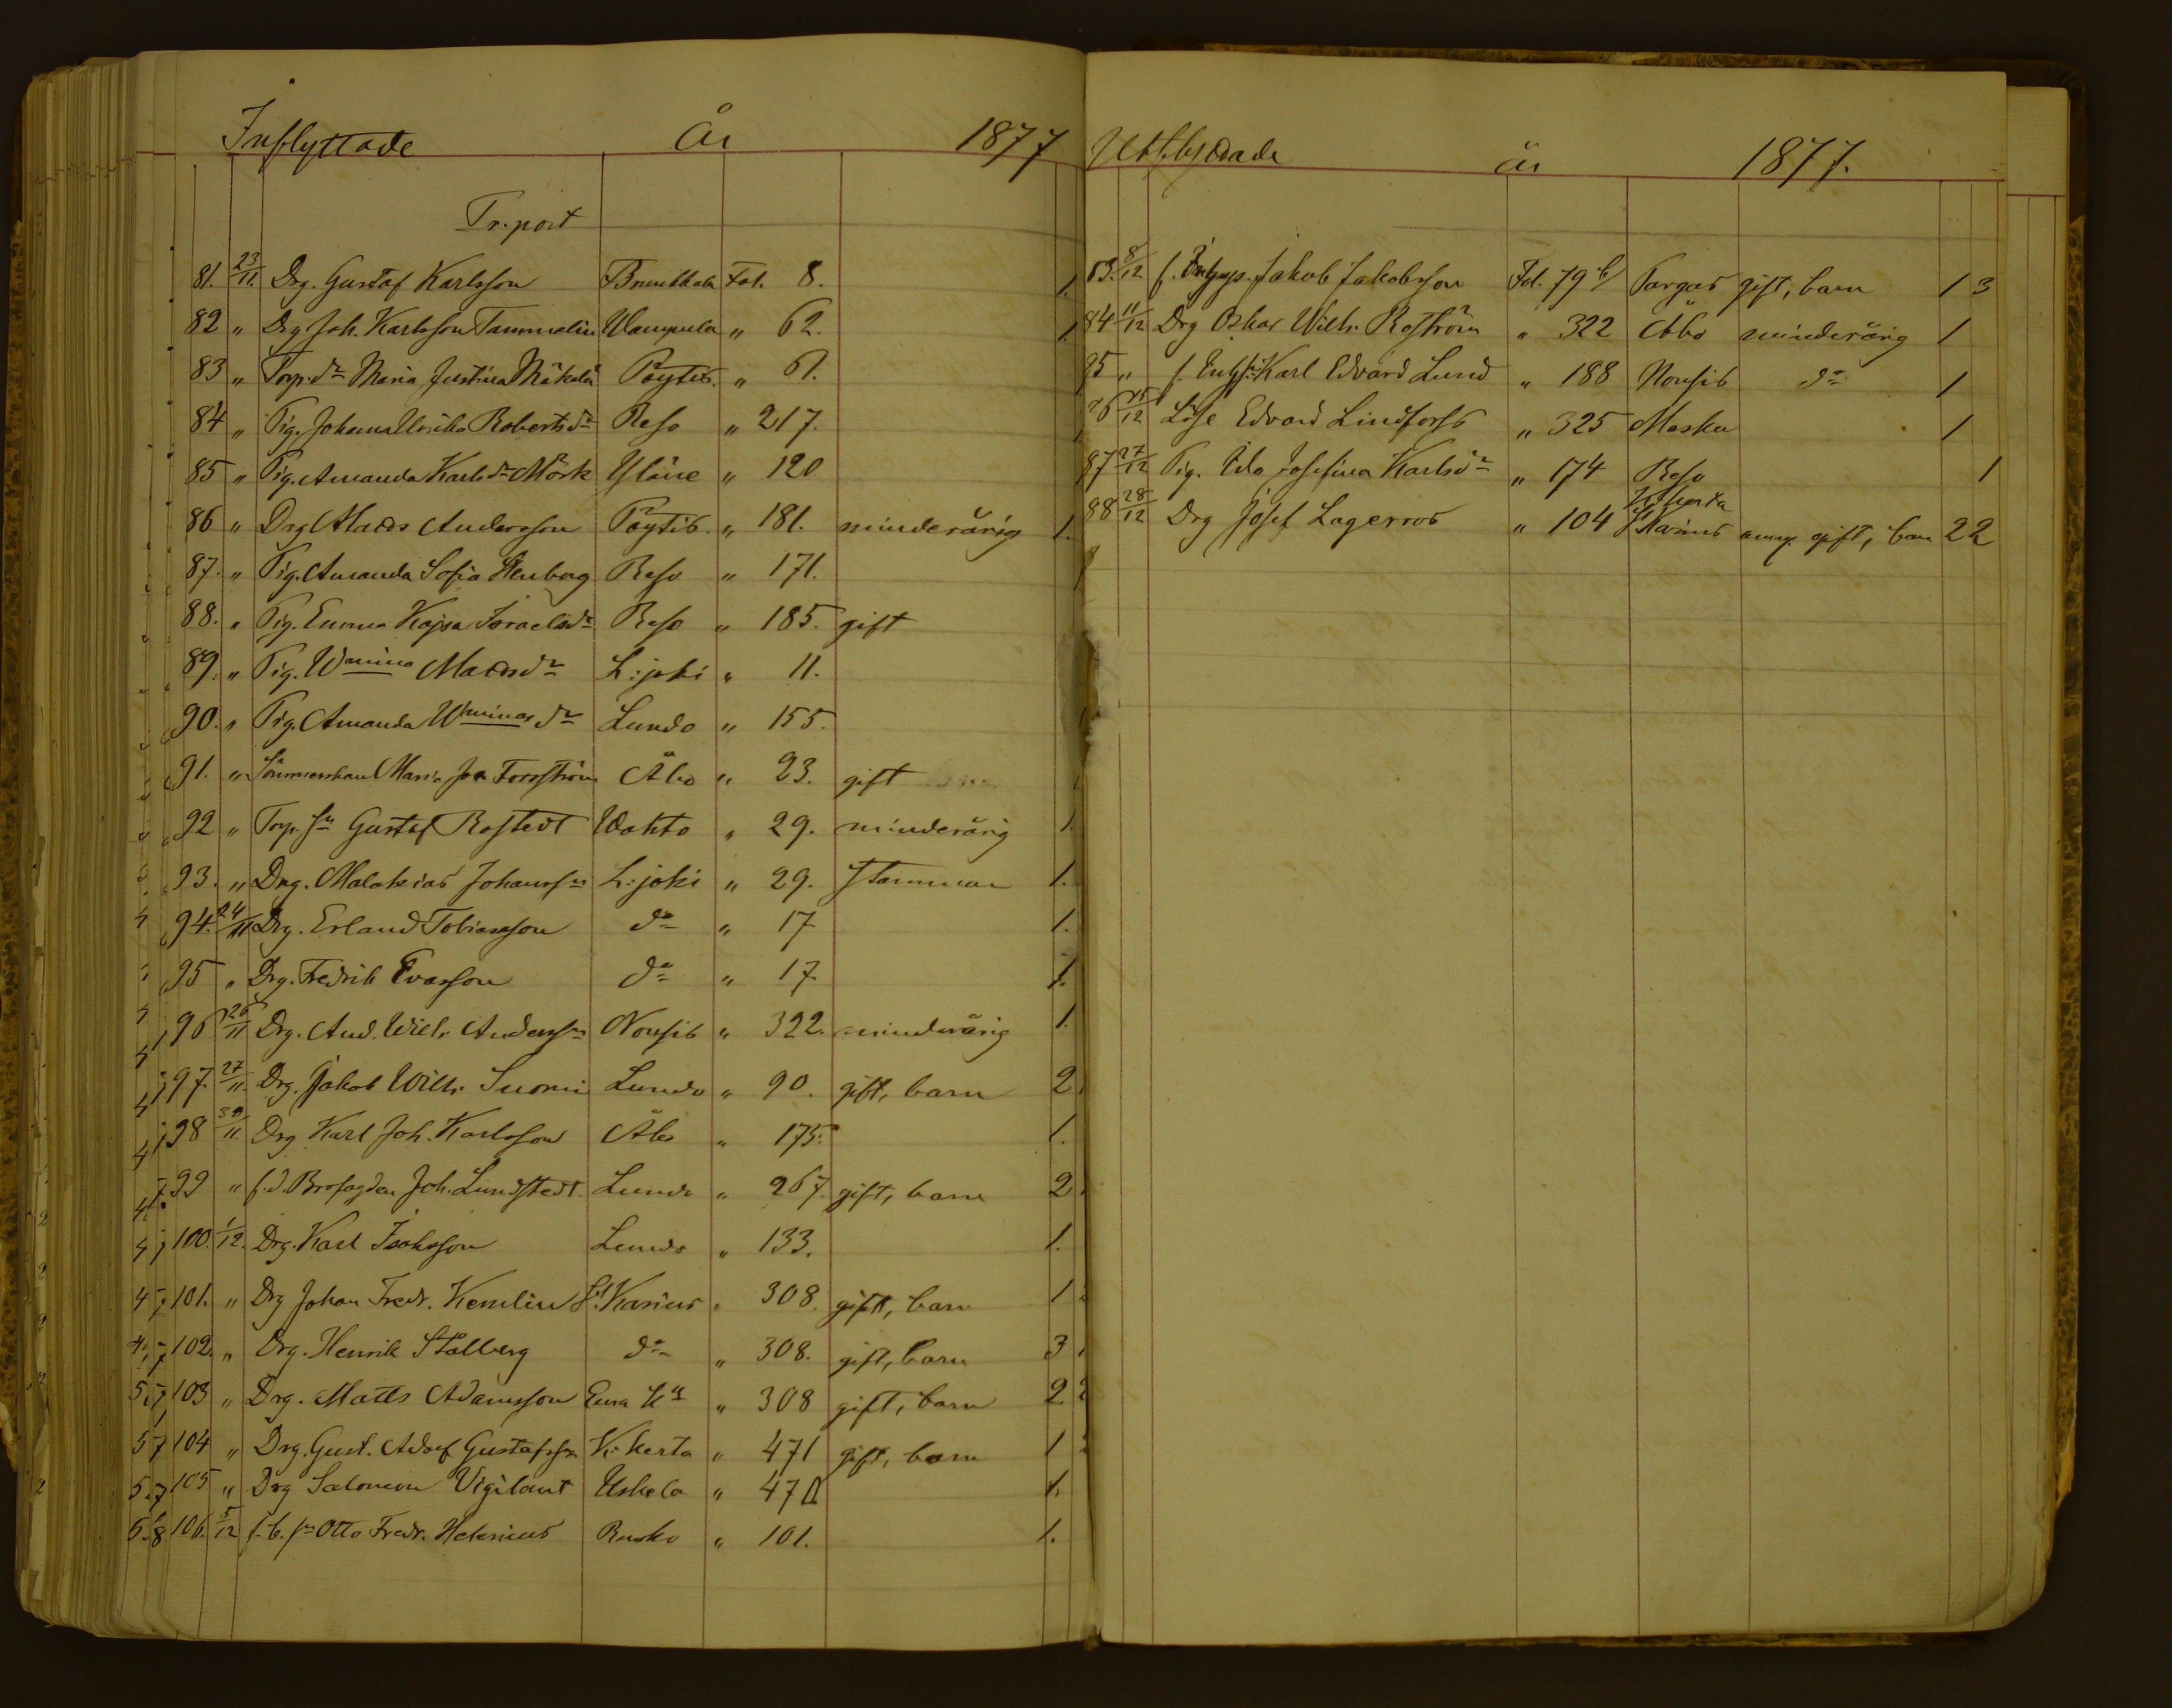 Inflyttade År 1877
Tr.port
81. 23/11. Drg. Gustaf Karlsson Brunkkala Fol. 8. 1.
82 " Drg Joh. Karlsson Tammelin Wampula " 62. 1.
83 " Torp. dr Maria Justina Mäkelä Pöytis. " 61.
84 " Pig. Johanna Ulrika Robertsdr Reso " 217.
85 " Pig. Amanda Karlsdr Mörk Yläne " 120
86 " Drg Mats Andersson Pöytis. " 181. minderårig 1.
87. " Pig. Amanda Sofia Stenberg Reso " 171.
88. " Pig. Emma Kajsa Israelsdr Reso " 185. gift
89. " Pig. Wamina Matsdr L:joki " 11.
90. " Pig. Amanda Wminas dr Lundo " 155.
91. " Sömmerskan Maria Forsström Åbo " 23. gift
92 " Torp. sn Gustaf Rostedt Wahto " 29. minderårig 1
93. " Drg. Malakias Johanssn L:joki " 29. Stamman 1.
94. 24/11 Drg. Erland Tobiasson do " 17 1.
95 " Drg. Fredrik Evasson do " 17. 1.
96 26/11 Drg. And. Wilh. Anderssn Nousis " 322. minderårig 1.
97. 27/11. Drg. Jakob Wilh. Suomi Lundo " 90. gift, barn 2
98 30/11 Drg Karl Joh. Karlsson Åbo " 175. 1.
99 " f.d. Brofogden Joh. Lundstedt. Lundo " 267. gift, barn 2
100. 1/12. Drg. Karl Isaksson Lundo " 133. 1.
101. " Drg Johan Fredr. Kemlin St Karins " 308. gift, barn 1
102. " Drg. Henrik Stålberg do " 308. gift, barn 3
103 " Drg. Matts Adamsson Eura " 308 gift, barn 2
104 " Drg. Gust. Adolf Gustafssn K:kerta " 471 gift, barn 1
105 " Drg Salomon Vigilant Uskela " 47 1.
106. 5/12 Otto Fredr. Helenius Rusko " 101. 1.
Utflyttade år 1877.
83. 8/12 f. Jakob Jakobsson Fol. 79 b/ Pargas gift, barn 1 3
84 11/12 Drg Oskar Wilh. Roström " 322 Åbo minderårig 1
85 " Karl Edvard Lund " 188 Nousis do 1
86 15/12 Löse Edvard Lindforss " 325 Masku 1
87 27/12 Pig. Ida Josefina Karlsdr " 174 Reso 1
88 28/12 Drg Josef Lagerros " 104 St Karins K:kerta gift, barn 2 2